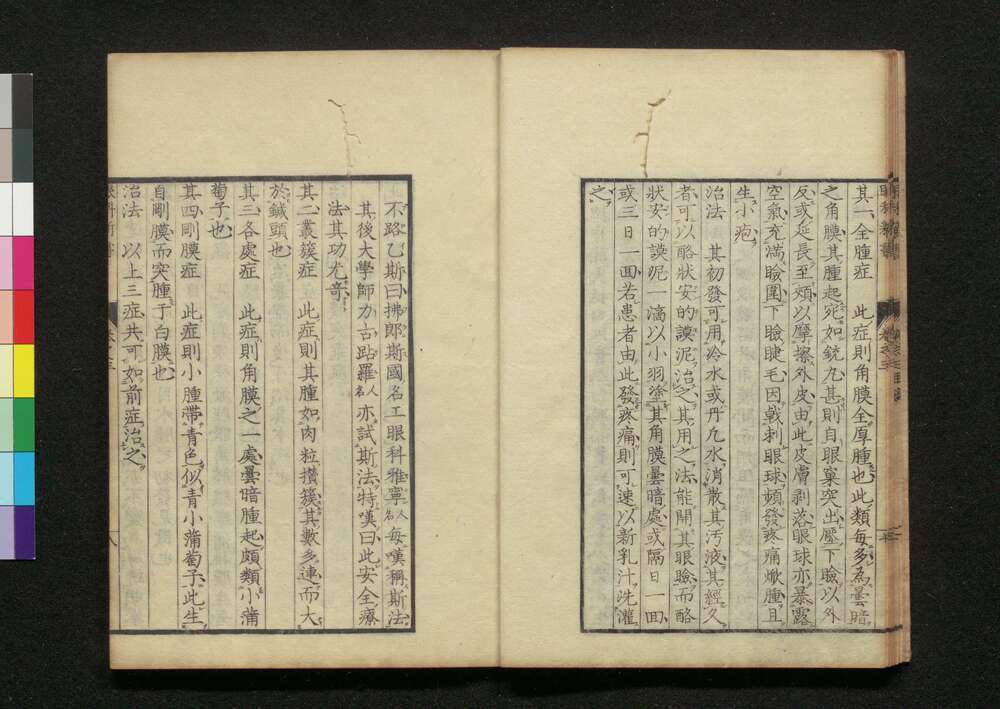 其一、全腫症 此症則角膜全厚腫也、此類每多為曇暗
之角膜、其腫起宛如銃丸、甚則自眼窠突出、壓下瞼以外
反、或延長至頰、以摩擦外皮、由此皮膚剝落、眼球亦暴露
空氣、充滿瞼圍、下瞼睫毛因戟刺眼球、頓發疼痛焮腫、且
生小疱、
治法 其初發可用冷水或丹凡水、消散其汚液、其經久
者、可以酪狀安的謨泥治之、其用之法、能開其眼瞼、而酪
狀安的謨泥一滴、以小羽塗其角膜曇暗處、或隔日一囬、
或三日一囬、若患者由此發疼痛、則可速以新乳汁洗灌
之、
不路乙斯曰、拂郎斯國名工眼科雅寧人名每嘆稱斯法、
其後大學師力古路羅人名亦試斯法、特嘆曰、此安全療
法、其功尤奇、
其二叢簇症 此症則其腫如肉粒攢簇、其數多連、而大
於鍼頭也、
其三各處症 此症則角膜之一處曇暗腫起、頗類小蒲
萄子也、
其四剛膜症 此症則小腫帶青色、似青小蒲萄子、此生
自剛膜而突腫于白膜也、
治法 以上三症、共可如前症治之、